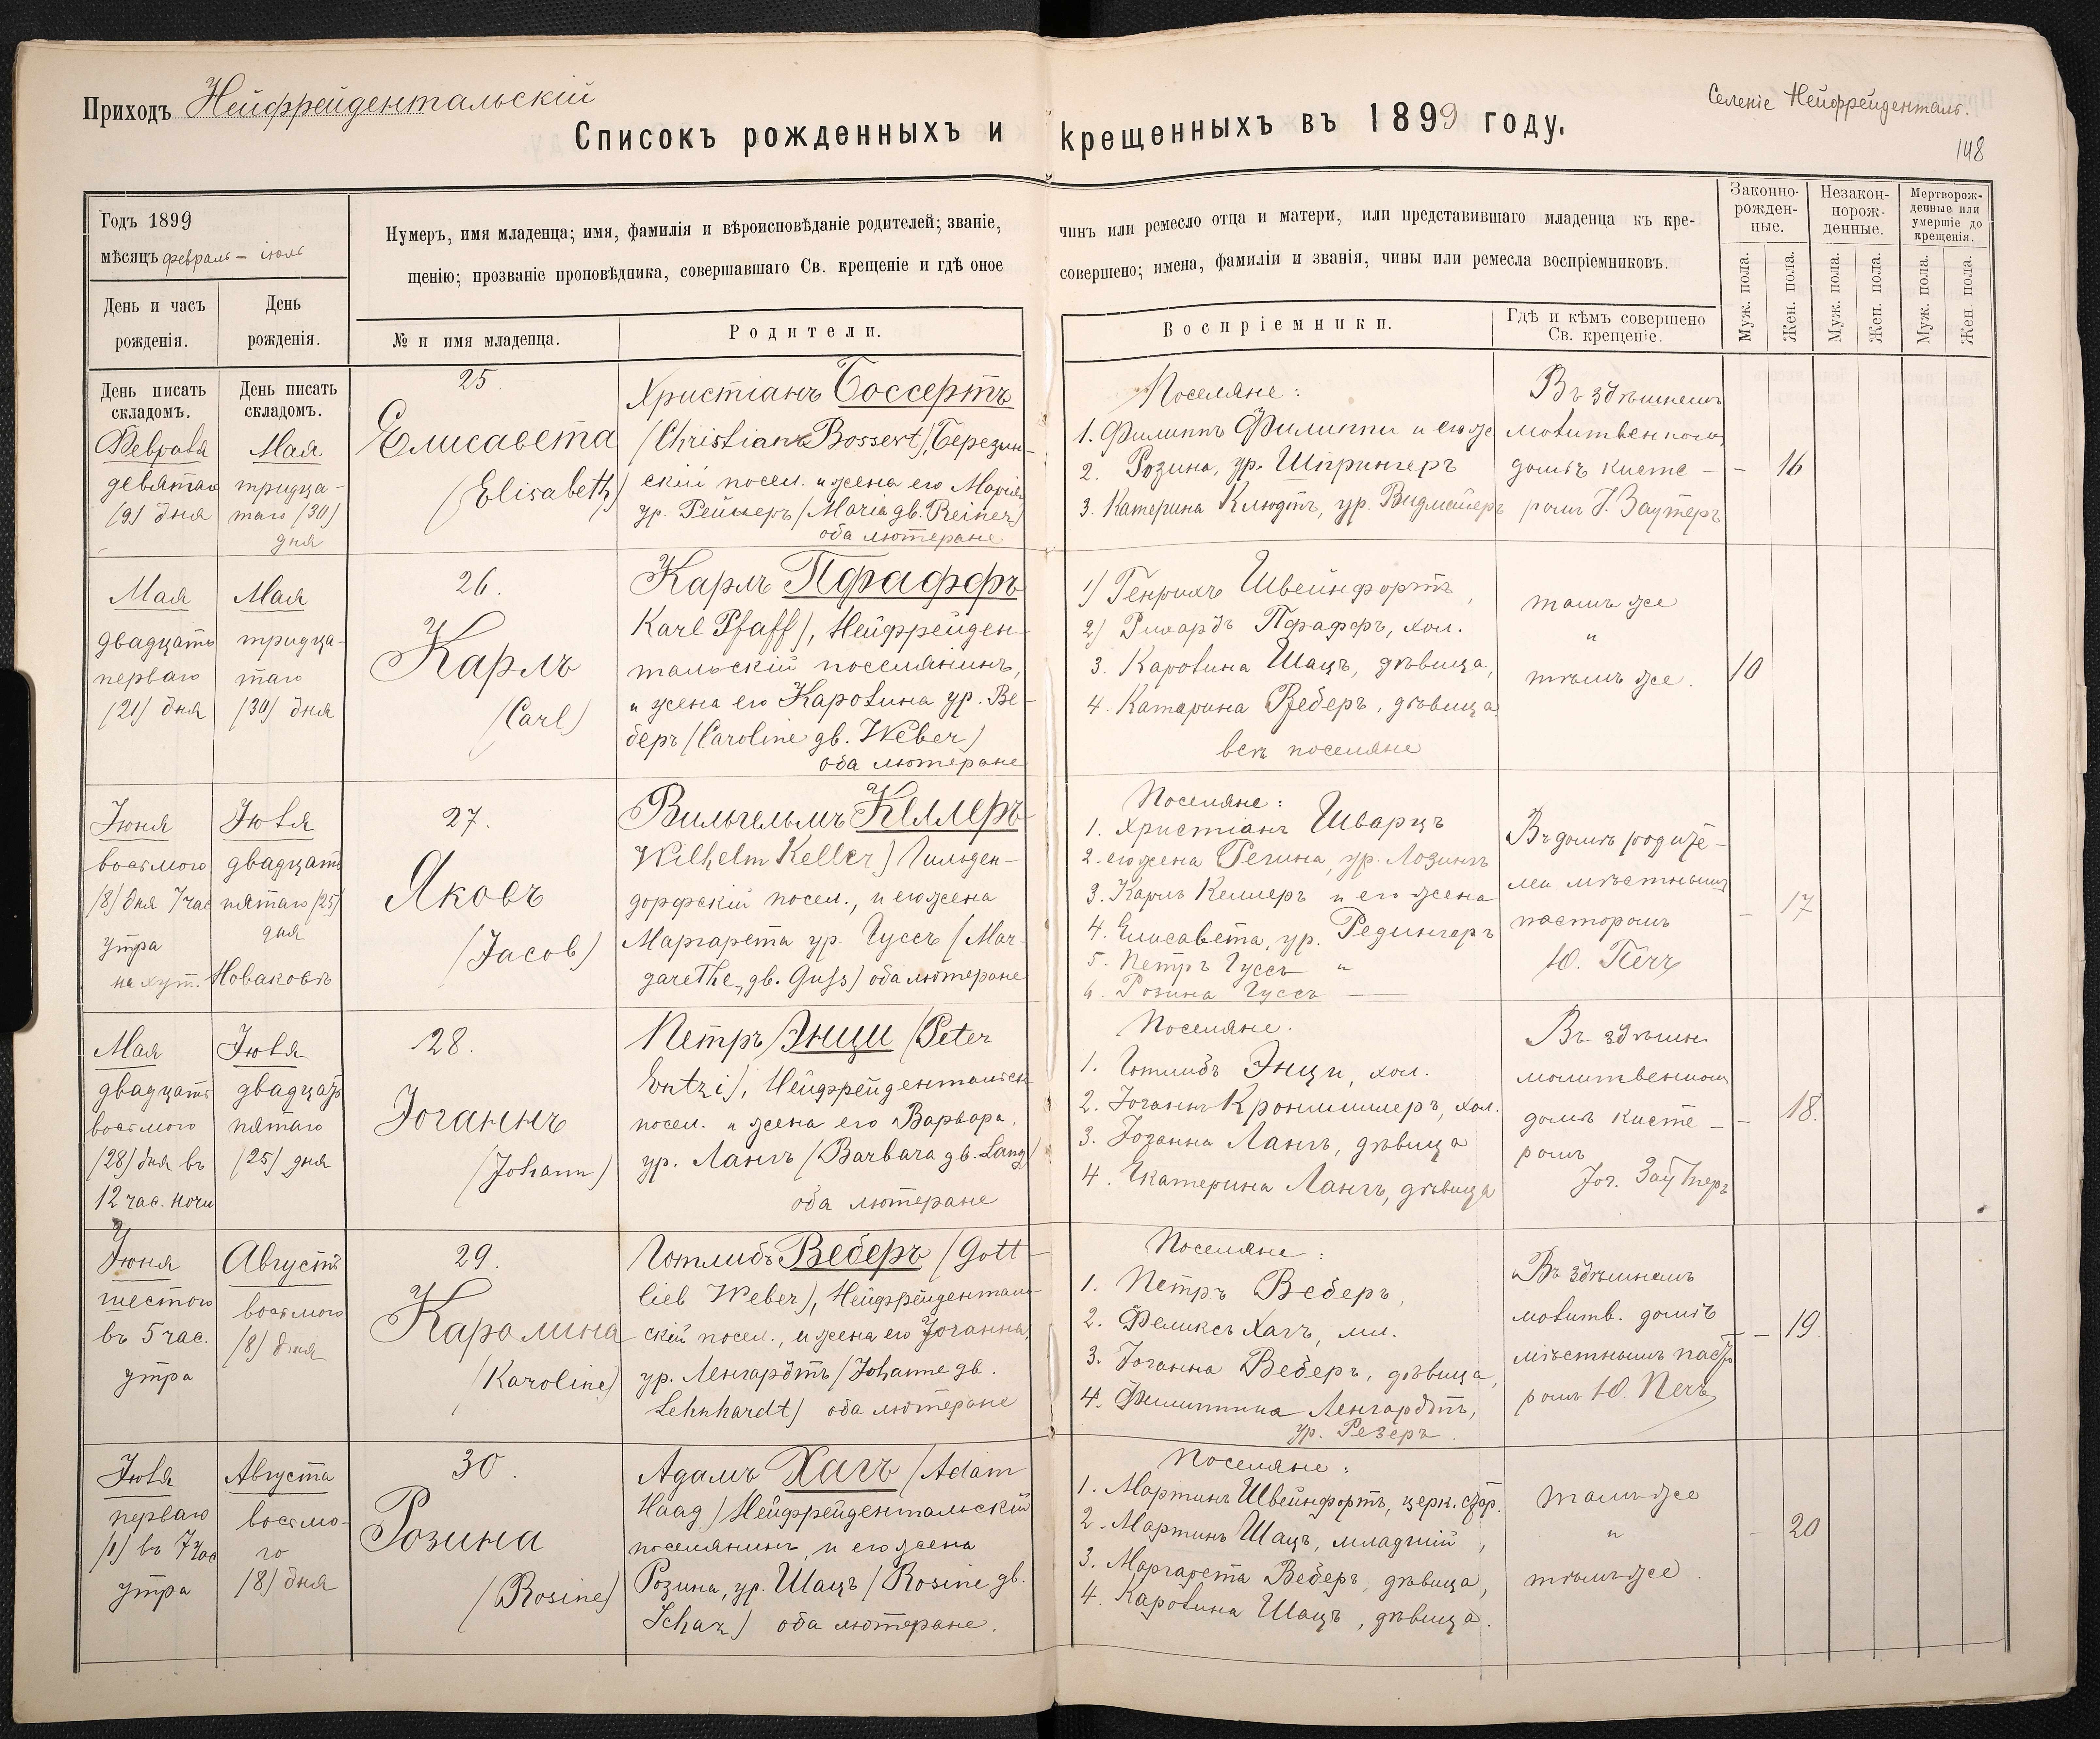 Приходъ Нейфрейдентальскій
Селеніе Нейфрейденталь.
148
Списокъ рожденныхъ и крещенныхъ въ 1899 году.
Годъ 1899
мѣсяцъ февраль – іюль
Нумеръ, имя младенца; имя, фамилія и вѣроисповѣданіе родителей; званіе, чинъ или ремесло отца и матери, или представившаго младенца къ кре-
щенію; прозваніе проповѣдника, совершавшаго Св. крещеніе и гдѣ оное совершено; имена, фамиліи и званія, чины или ремесла воспріемниковъ.
Законно-
рожден-
ные.
Незакон-
норож-
денные.
Мертворож-
денные или
умершіе до
крещенія.
День и часъ
рожденія.
День
рожденія.
№ и имя младенца.
Родители.
Воспріемники.
Гдѣ и кѣмъ совершено
Св. крещеніе.
Муж. пола.
Жен. пола.
Муж. пола.
Жен. пола.
Муж. пола.
Жен. пола.
День писать
складомъ.
Февраля
девятаго
/9/ дня
День писать
складомъ.
Мая
тридца-
таго /30/
дня
25.
Елисавета
/Elisabeth/
Христіанъ Боссертъ
/Christian Bossert/, Березин-
скій посел. и жена его Марія
ур. Рейнеръ /Maria gb. Reiner/
оба лютеране
Поселяне:
1. Филиппъ Филиппи и его ж
2. Розина, ур. Шпрингеръ
3. Катерина Клюдтъ, ур. Видмейеръ
Въ здѣшнемъ
молитвенномъ
домѣ кисте-
ромъ І. Заутеръ
– 16
Мая
двадцать
перваго
/21/ дня
Мая
тридца-
таго
/30/ дня
26.
Карлъ
/Carl/
Карлъ Пфаффъ
Karl Pfaff/, Нейфрейден-
тальскій поселянинъ,
и жена его Каролина ур. Ве-
беръ /Caroline gb. Weber/
оба лютеране
1/ Генрихъ Швейнфортъ,
2/ Рихардъ Пфаффъ, хол.
3. Каролина Шацъ, дѣвица,
4. Катарина Веберъ, дѣвица
всѣ поселяне
тамъ же
"
тѣмъ же.
10
Іюня
восьмого
/8/ дня 7 час
утра
на хут. Новаковѣ
Іюля
двадцать
пятаго /25/
дня
27.
Яковъ
/Jacob/
Вильгельмъ Келлеръ
Wilhelm Keller/ Гильден-
дорфскій посел., и его жена
Маргарета ур. Гуссъ /Mar-
garethe, gb. Guss/ оба лютеране
Поселяне:
1. Христіанъ Шварцъ
2. его жена Регина, ур. Лозингъ
3. Карлъ Келлеръ и его жена
4. Елисавета, ур. Редингеръ
5. Петръ Гуссъ "
6. Розина Гуссъ —
Въ домѣ родите-
лей мѣстнымъ
пасторомъ
Ю. Печъ
– 17
Мая
двадцать
восьмого
/28/ дня въ
12 час. ночи
Іюля
двадцать
пятаго
/25/ дня
28.
Іоганнъ
/Johann/
Петръ Энци /Peter
Entzi/, Нейфрейдентальск
посел. и жена его Варвара,
ур. Лангъ /Barbara gb. Lang/
оба лютеране
Поселяне.
1. Готлибъ Энци, хол.
2. Іоганнъ Кронмиллеръ, хол.
3. Іоганна Лангъ, дѣвица
4. Екатерина Лангъ, дѣвица
Въ здѣшн.
молитвенномъ
домѣ кисте-
ромъ
Іог. Заутеръ
– 18.
Іюня
шестого
въ 5 час.
утра
Августа
восьмого
/8/ дня
29.
Каролина
/Karoline/
Готлибъ Веберъ /Gott-
lieb Weber/, Нейфрейденталь-
скій посел., и жена его Іоганна,
ур. Ленгардтъ /Johanne gb.
Lehnhardt/ оба лютеране
Поселяне:
1. Петръ Веберъ,
2. Феликсъ Хагъ, мл.
3. Іоганна Веберъ, дѣвица,
4. Филиппина Ленгардтъ,
ур. Резеръ.
Въ здѣшнемъ
молитв. домѣ
мѣстнымъ пасто
ромъ Ю. Печъ
– 19.
Іюля
перваго
/1/ въ 7 час
утра
Августа
восьмо-
го
/8/ дня
30.
Розина
/Rosine/
Адамъ Хагъ /Adam
Haag/ Нейфрейдентальскій
поселянинъ, и его жена
Розина, ур. Шацъ /Rosine gb.
Schaz/ оба лютеране.
Поселяне:
1. Мартинъ Швейнфортъ, церк.
2. Мартинъ Шацъ, младшій,
3. Маргарета Веберъ, дѣвица,
4. Каролина Шацъ, дѣвица.
тамъ же
"
тѣмъ же.
– 20